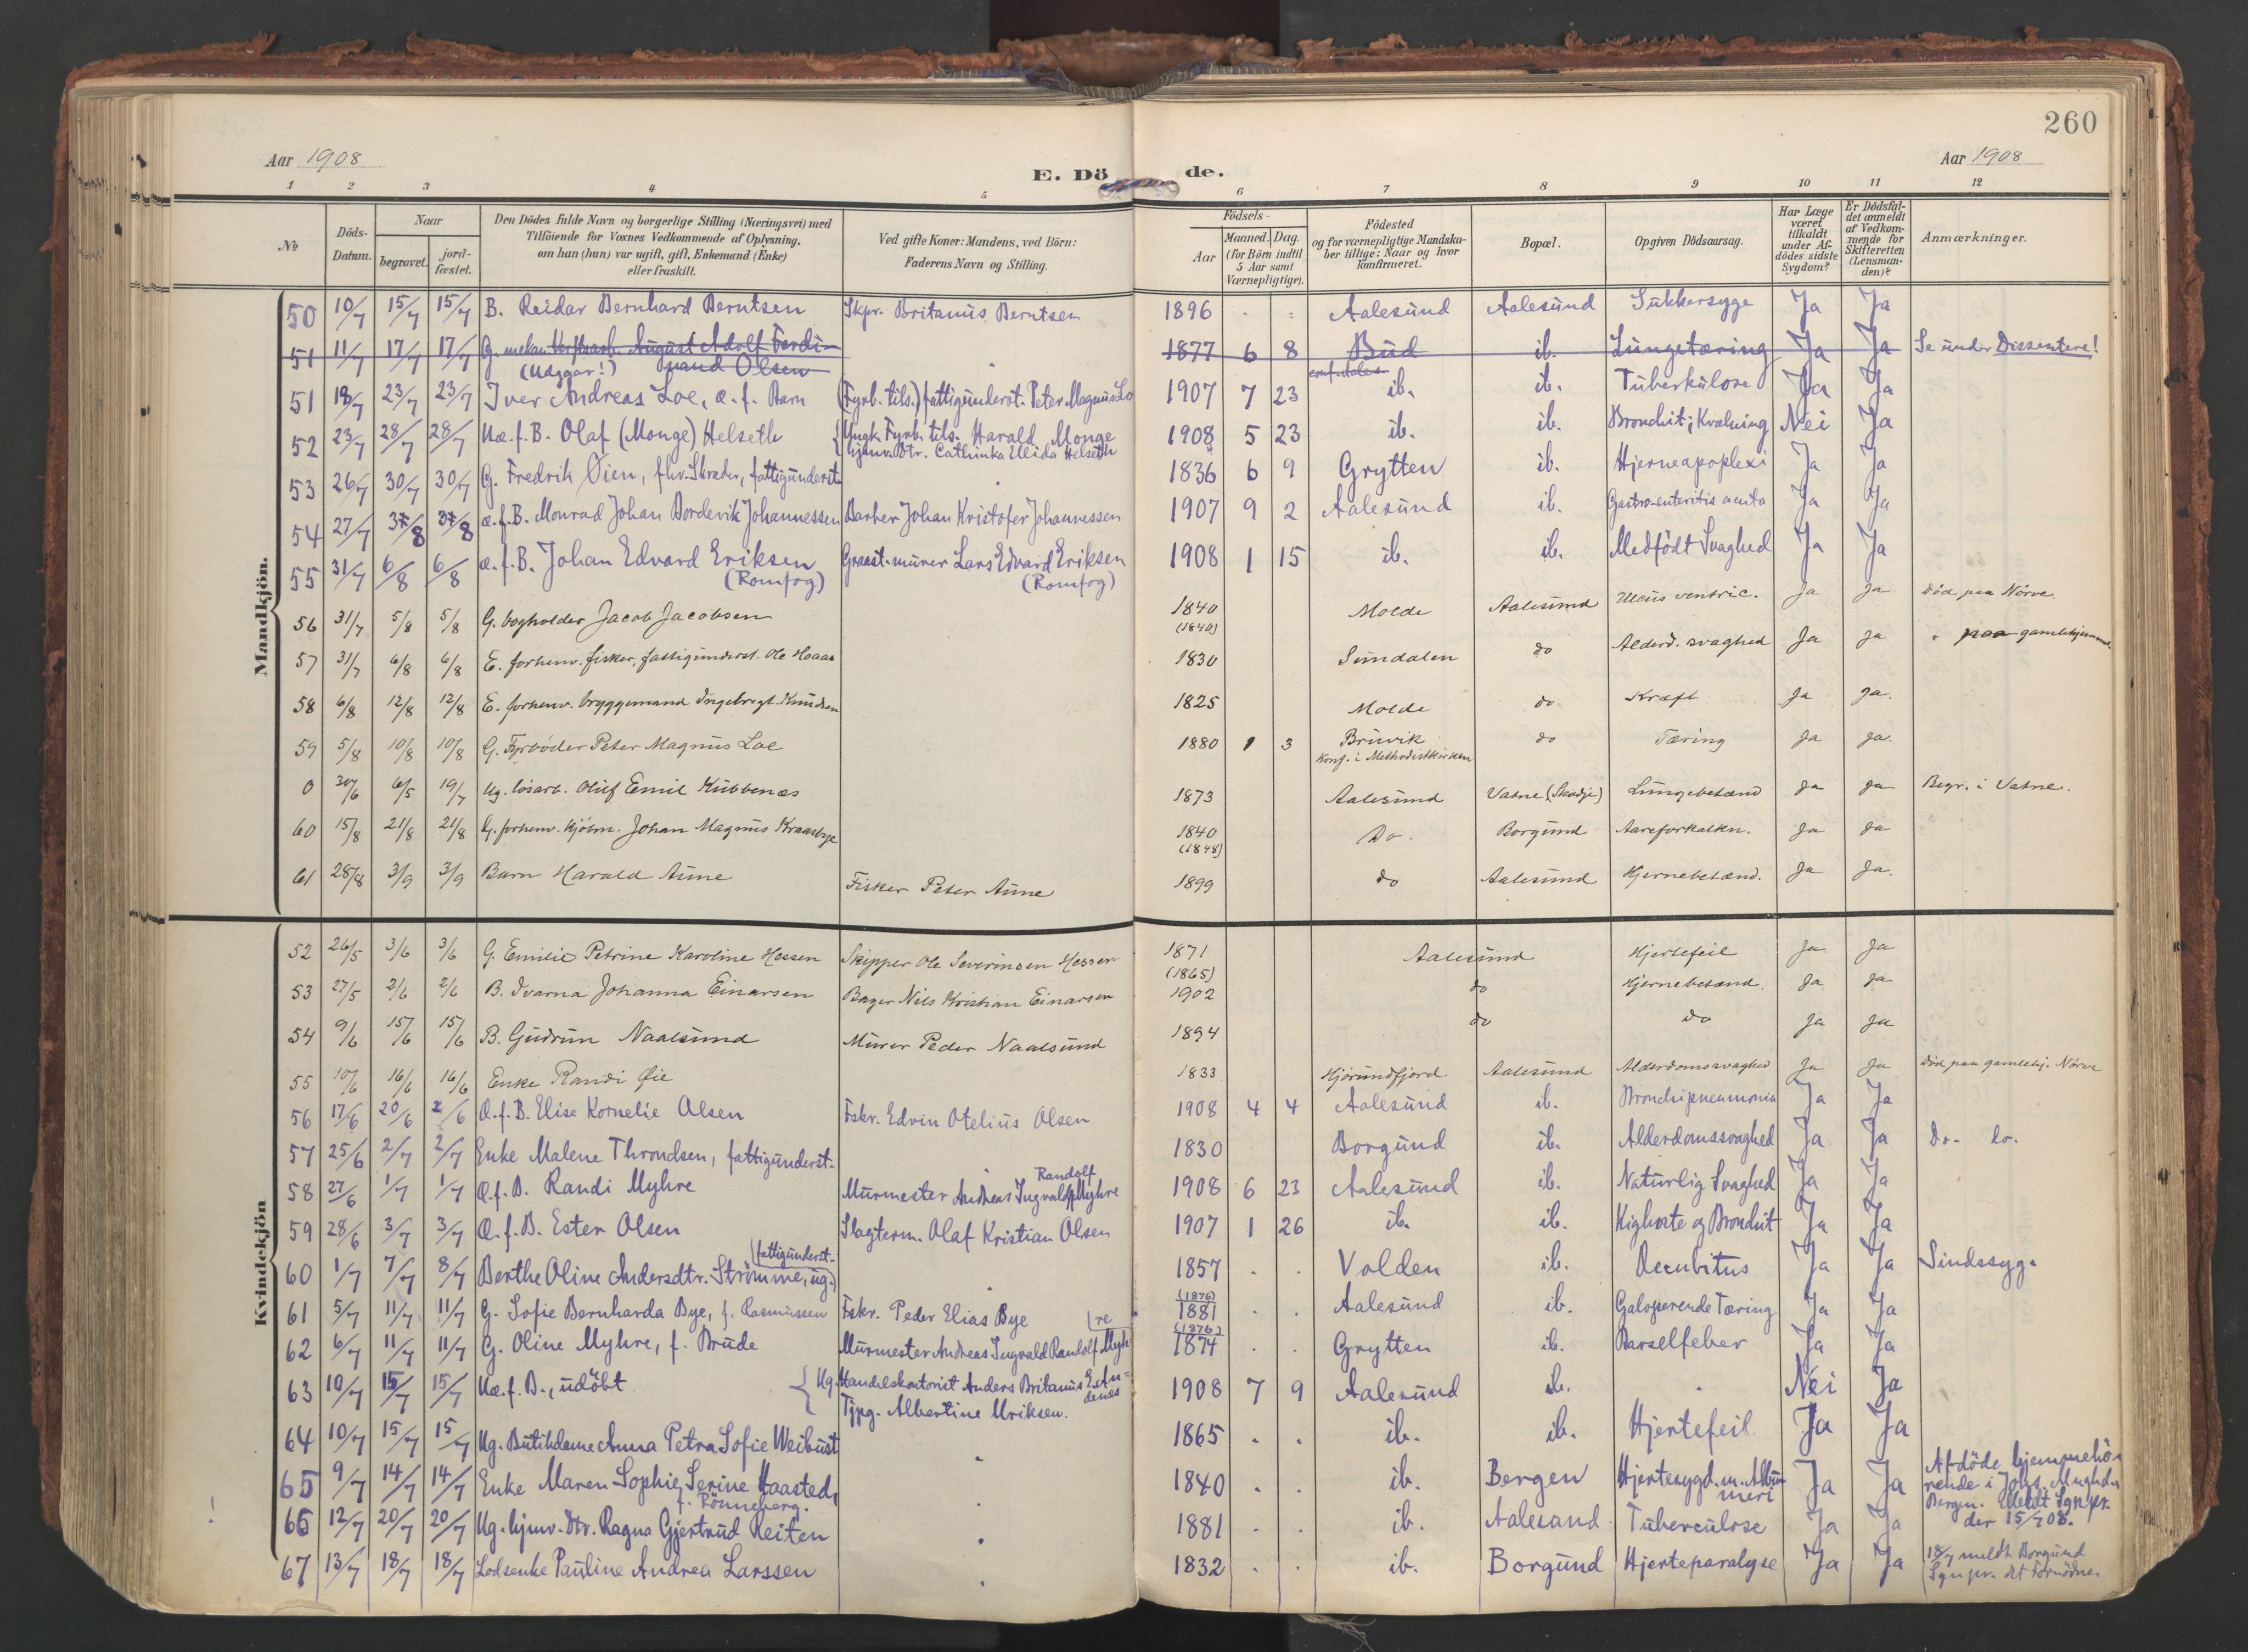 260
Aar 1908
Aar 1908
E. Dö de.
1 2 3 4 5 6 7 8 9 10 11 12
№
Döds-Datum.
Naar
begravet.
jord-fæstet.
Den Dödes fulde Navn og borgerlige Stilling (Næringsvei) med
Tilföiende for Voxnes Vedkommende af Oplysning,
om han (hun) var ugift, gift, Enkemand (Enke)
eller fraskilt.
Ved gifte Koner: Mandens, ved Börn:
Faderens Navn og Stilling.
Födsels-
Aar
Maaned. Dag.
(for Börn indtil
5 Aar samt
Værnepligtige).
Födested
og for værnepligtige Mandska-
ber tillige: Naar og hvor
konfirmeret.
Bopæl.
Opgiven Dödsaarsag.
Har Læge
været
tilkaldt
under Af-
dödes sidste
Sygdom?
Er Dödsfal-
det anmeldt
af Vedkom-
mende for
Skifteretten
(Lensman-
den)?
Anmærkninger.
Mandkjön.
50 10/7 15/7 15/7 B. Reidar Bernhard Berntsen Skpr. Britanius Berntsen 1896 Aalesund Aalesund Sukkersyge Ja Ja
51 11/7 17/7 17/7 G. mekan. Verkstarb. August Adolf Ferdi- 1877 6 8 Bud ib. Lungetæring Ja Ja Se under Dissentere!
(Udgaar!) nand Olsen conf. Aales.
51 18/7 23/7 23/7 Iver Andreas Loe, æ. f. Barn (Fyrb. tils.) fattigunderst. Peter Magnus Lo 1907 7 23 ib. ib. Tuberkulose Ja Ja
52 23/7 28/7 28/7 Uæ. f. B. Olaf (Monge) Helseth Ungk. Fyrb. tils. Harald Monge 1908 5 23 ib. ib. Bronchit; Kvælning Nei Ja
hjemv. Dtr. Cathinka Elida Helseth
53 26/7 30/7 30/7 G. Fredrik Øien, fhv. Skræder, fattigunderst. 1836 6 9 Grytten ib. Hjerneapoplexi Ja Ja
54 27/7 3/8 3/8 æ. f. B. Monrad Johan Bordevik Johannessen Barber Johan Kristofer Johannessen 1907 9 2 Aalesund ib. Gastro-enteritis acuta Ja Ja
55 31/7 6/8 6/8 æ. f. B. Johan Edvard Eriksen Graast.murer Lars Edvard Eriksen 1908 1 15 ib. ib. Medfödt Svaghed Ja Ja
(Romfog) (Romfog)
56 31/7 5/8 5/8 G. bogholder Jacob Jacobsen 1840 (1840) Molde Aalesund Ulcus ventric. Ja Ja Död paa Nörve.
57 31/7 6/8 6/8 E. forhenv. fisker, fattigunderst. Ole Hoaas 1830 Sundalen do Alderd. svaghed Ja Ja " paa gamlehjemmet.
58 6/8 12/8 12/8 E. forhenv. bryggemand Ingebregt Knudsen 1825 Molde do Kræft Ja Ja.
59 5/8 10/8 10/8 G. Fyrböder Peter Magnus Loe 1880 1 3 Bruvik do Tæring Ja Ja.
Konf. i Methodistkirken
0 30/6 6/5 19/7 Ug. lösarb. Oluf Emil Kubbenæs 1873 Aalesund Vatne (Skodje) Lungebetænd Ja Ja Begr. i Vatne.
60 15/8 21/8 21/8 G. forhenv. Kjöbm. Johan Magnus Kraasbye 1840 (1848) Do. Borgund Aareforkalkn. Ja Ja
61 28/8 3/9 3/9 Barn Harald Aune Fisker Peter Aune 1899 do Aalesund Hjernebetænd. Ja Ja.
Kvindekjön
52 26/5 3/6 3/6 G. Emilie Petrine Karoline Hessen Skipper Ole Severinsen Hessen 1871 (1865) Aalesund Hjertefeil Ja Ja
53 27/5 2/6 2/6 B. Ivarna Johanna Einarsen Bager Nils Kristian Einarsen 1902 do Hjernebetænd. Ja Ja
54 9/6 15/6 15/6 B. Gudrun Naalsund Murer Peder Naalsund 1894 do do Ja Ja
55 10/6 16/6 16/6 Enke Randi Øie 1833 Hjörundfjord Aalesund Alderdomssvaghed Ja Ja Död paa gamlehj. Nörve
56 17/6 20/6 2/6 Æ. f. B. Elise Kornelie Olsen Fskr. Edvin Otelius Olsen 1908 4 4 Aalesund ib. Bronchipneumonia Ja Ja
57 25/6 2/7 2/7 Enke Malene Throndsen, fattigunderst. 1830 Borgund ib. Alderdomssvaghed Ja Ja Do. do.
58 27/6 1/7 1/7 Æ. f. B. Randi Myhre Murmester Andreas Ingvald Randolf Myhre 1908 6 23 Aalesund ib. Naturlig Svaghed Ja Ja
59 28/6 3/7 3/7 Æ. f. B. Ester Olsen Slagterm. Olaf Kristian Olsen 1907 1 26 ib. ib. Kighoste og Bronchit Ja Ja
60 1/7 7/7 8/7 Berthe Oline Andersdtr. Strömme, ug. fattigunderst. 1857 Volden ib. Decubitus Ja Ja Sindssyg.
61 5/7 11/7 11/7 G. Sofie Bernharda Bye, f. Rasmussen Fskr. Peder Elias Bye (1876) 1881 Aalesund ib. Galoperende Tæring Ja Ja
62 6/7 11/7 11/7 G. Oline Myhre, f. Brude Murmester Andreas Ingvald Randolf Myhre (1876) 1874 Grytten ib. Barselfeber Ja Ja
63 10/7 15/7 15/7 Uæ. f. B., udöbt Ug. Handelskontorist Anders Britanius E. An-denæs 1908 7 9 Aalesund ib. Nei Ja
Tjpg. Albertine Ulriksen.
64 10/7 15/7 15/7 Ug. Butikdame Anna Petra Sofie Weibust 1865 ib. ib. Hjertefeil Ja Ja
65 9/7 14/7 14/7 Enke Maren Sophie Serine Haasted, 1840 ib. Bergen Hjertesygd. m. Albu-meri Ja Ja Afdöde hjemmehö-
f. Rönneberg. rende i Johs. Menighed
Bergen. Meldt Sgnpr.
der 15/7 08.
66 12/7 20/7 20/7 Ug. hjmv. Dtr. Ragna Gjertrud Reiten 1881 ib. Aalesund Tuberculose Ja Ja
67 13/7 18/7 18/7 Lodsenke Pauline Andrea Larssen 1832 ib. Borgund Hjerteparalyse Ja Ja 18/7 meldt Borgund
Sgnpr. det Fornödne.